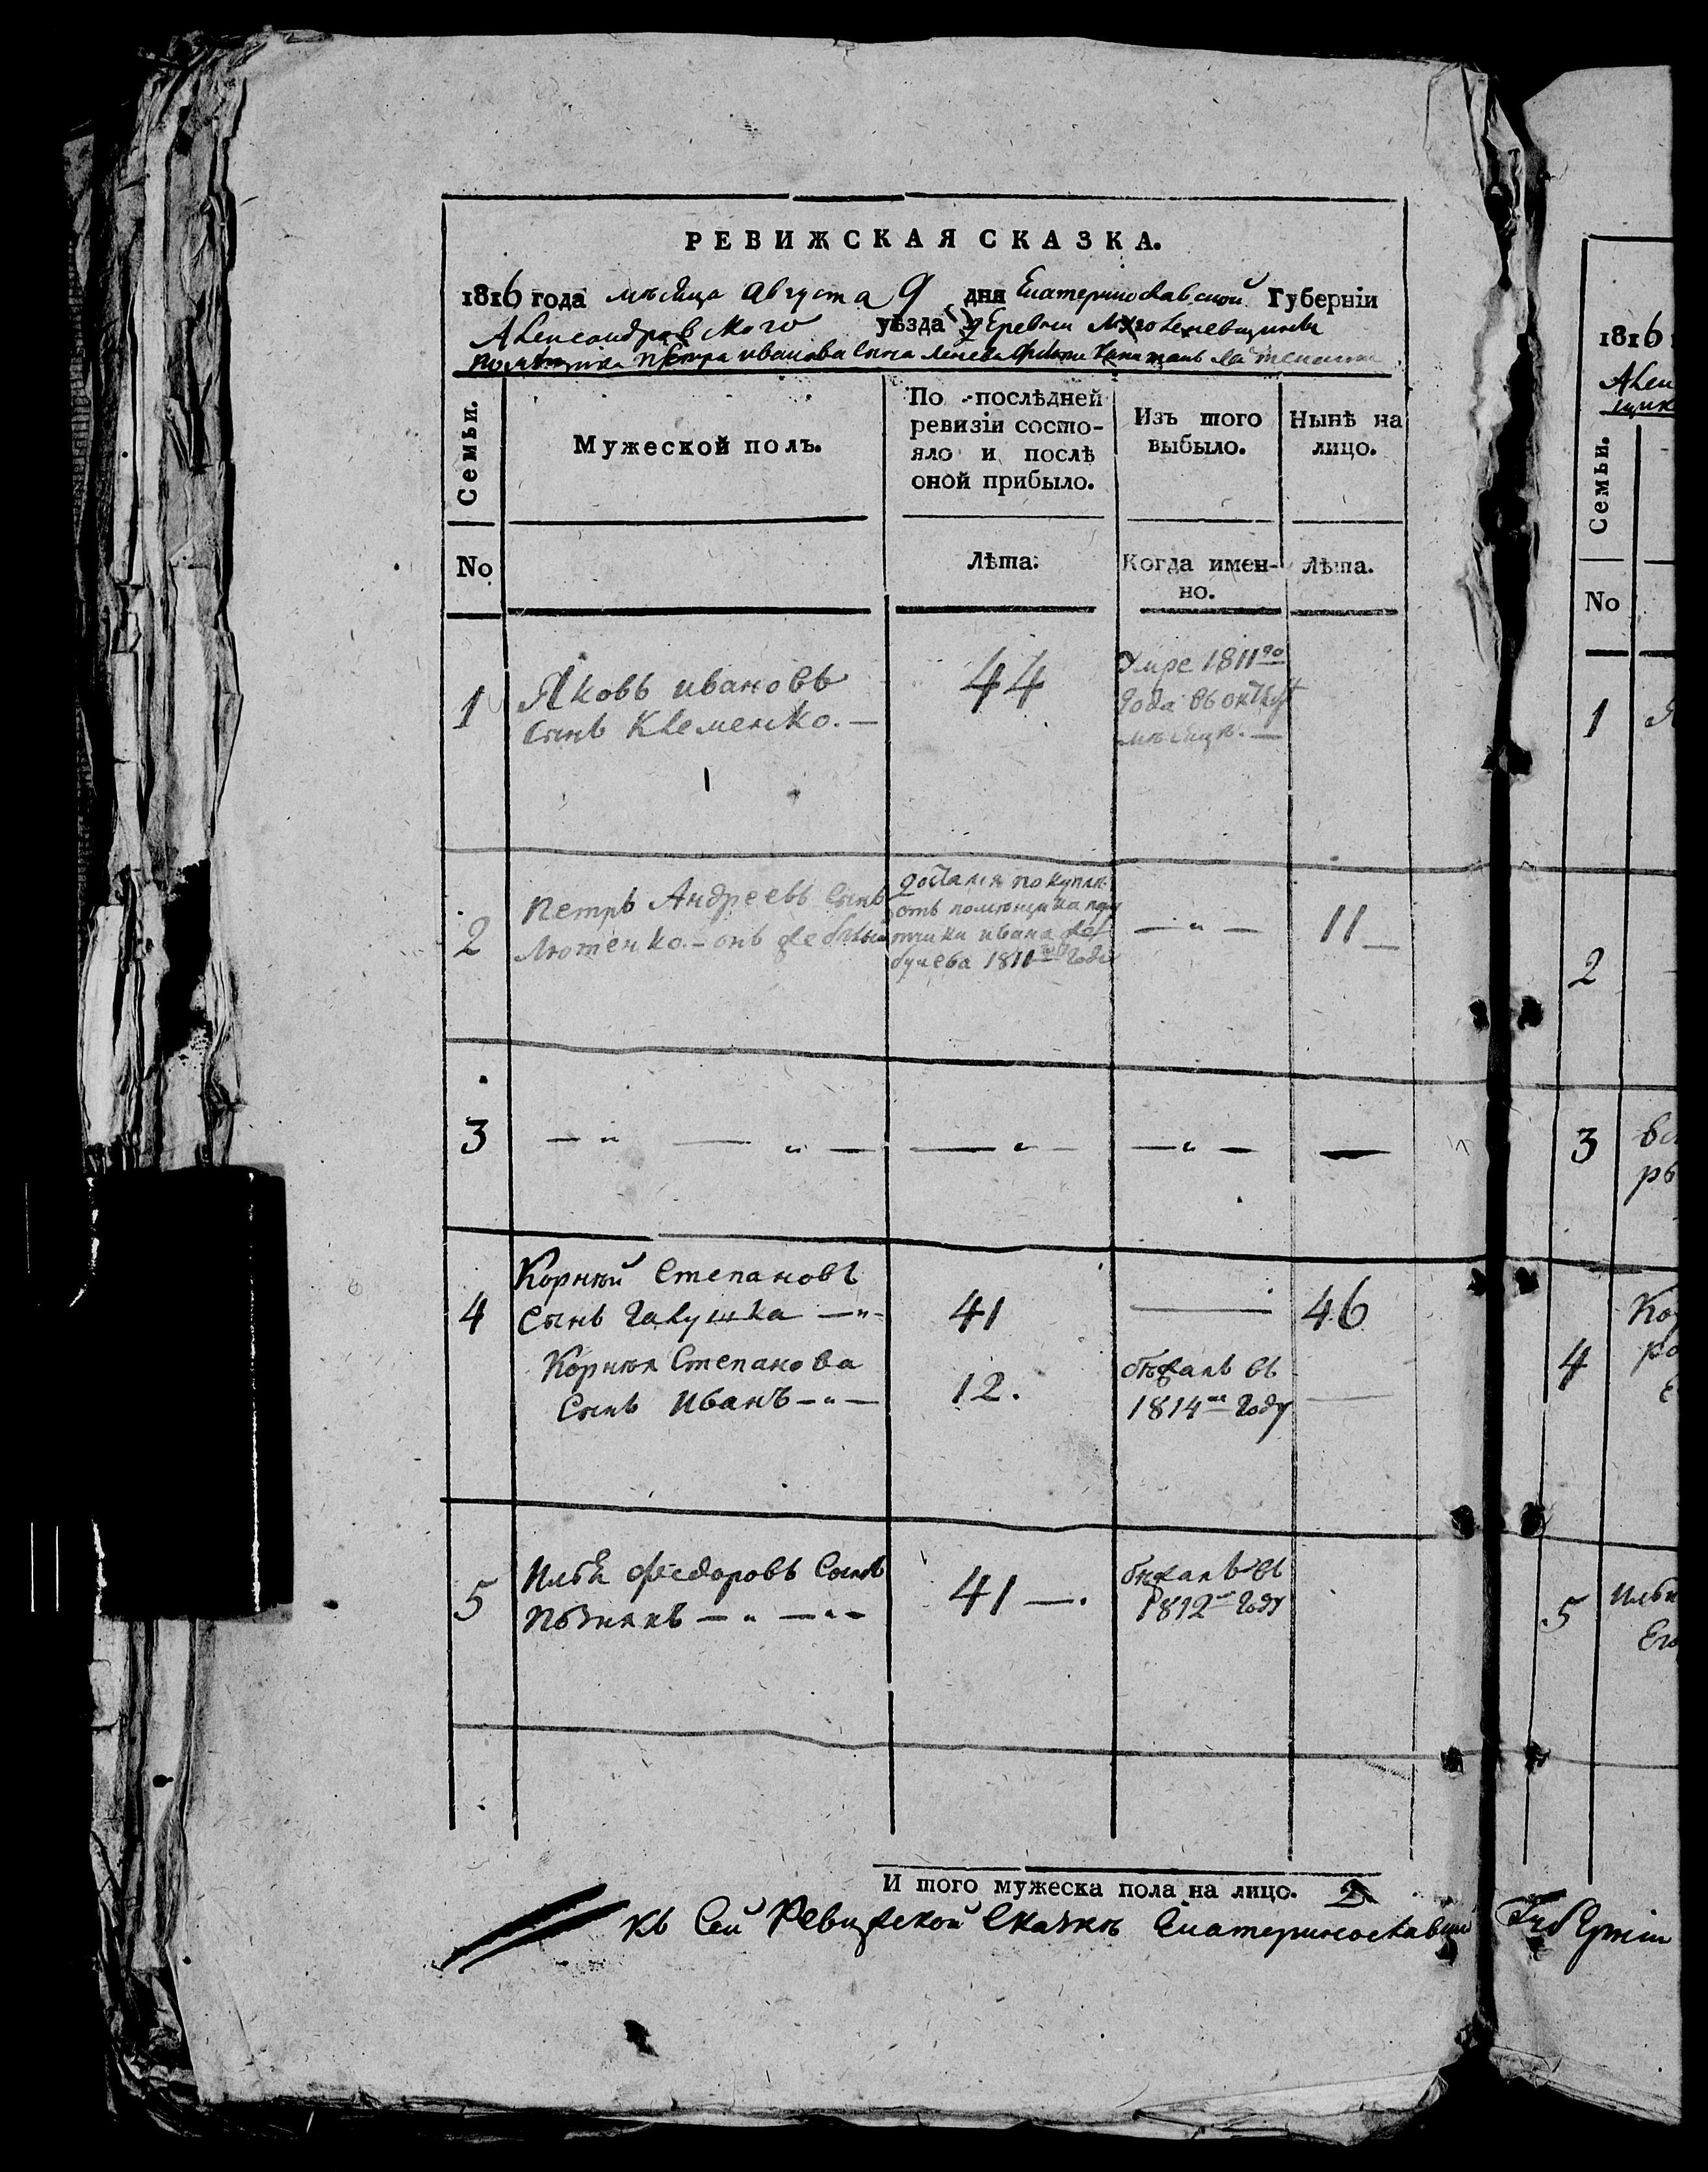 РЕВИЖСКАЯ СКАЗКА.
1816 года мѣсяца августа 9 дня Екатеринославской Губерніи
Александровского уѣзда деревни
помѣщика Петра иванова сына
Семьи.
Мужеской полъ.
По послѣдней
ревизіи состо-
яло и послѣ
оной прибыло.
Изъ того
выбыло.
Нынѣ на
лицо.
No
Лѣта.
Когда имен-
но.
Лѣта.
1
Яковъ ивановъ
сынъ Клеменко. —
44
Умре 1811го
года въ октяб
мѣсяцѣ. —
1
2
Петръ Андреевъ сынъ
Лютенко. — онъ же
досталя по купли
отъ помющика
ивана
1811го года
— " —
11 —
3
— " — " —
— " —
— " —
—
4
Корнѣй Степановъ
сынъ Галушка — " -
41
—
46
Корнѣя Степанова
сынъ Иванъ — " —
12.
бѣжалъ въ
1814м году
—
5
Илья федоровъ сынъ
Познякъ — " — " —
41 — .
бѣжалъ въ
1812м году
И того мужеска пола на лицо. 2
къ сей Ревижской сказкѣ Екатеринославской
1816
Ален
щик
Семьи.
No
1
Я
2
3
вс
ръ
4
Ко
ро
Е
5
Илья
Его
Губерніи